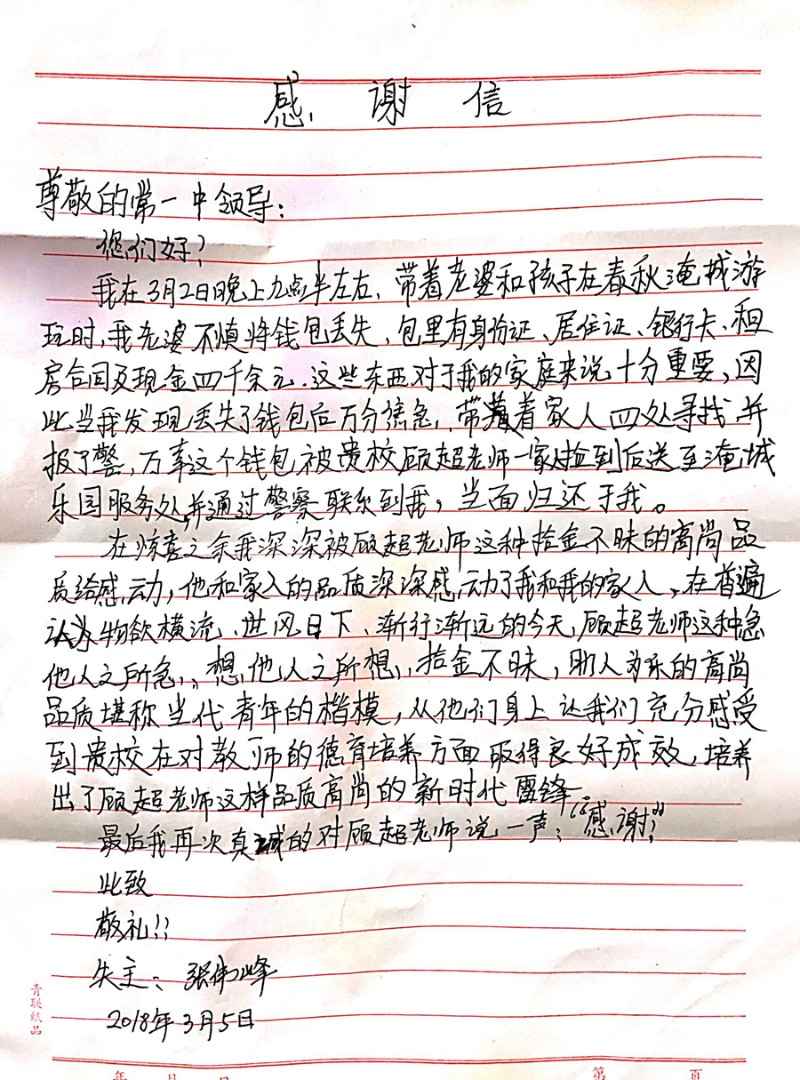 感谢信
尊敬的常一中领导：
您们好？
我在3月2日晚上九点半左右，带着老婆和孩子在春秋淹城游
玩时，我老婆不慎将钱包丢失，包里有身份证、居住证、银行卡、租
房合同及现金四千余元。这些东西对于我的家庭来说十分重要，因
此当我发现丢失了钱包后万分焦急，带着家人四处寻找并
报了警，万幸这个钱包被贵校顾超老师一家人捡到后送至淹城
乐园服务处，并通过警察联系到我，当面归还于我。
在惊喜之余我深深被顾超老师这种拾金不昧的高尚品
质给感动，他和家人的品质深深感动了我和我的家人，在普遍
认为物欲横流、世风日下、渐行渐远的今天，顾超老师这种急
他人之所急，想他人之所想，拾金不昧，助人为乐的高尚
品质堪称当代青年的楷模，从他们身上让我们充分感受
到贵校在对教师的德育培养方面取得良好成效，培养
出了顾超老师这样品质高尚的新时代雷锋
最后我再次真诚的对顾超老师说一声：“感谢？”
此致
敬礼！！
失主：张伟峰
2018年3月5日
青联纸品
年 月 日 第 页